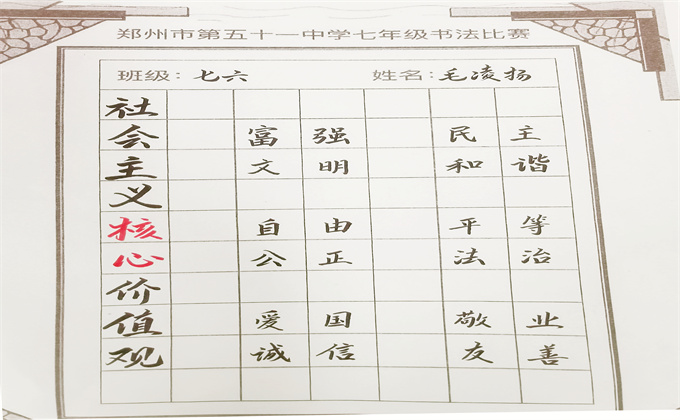 郑州市第五十一中学七年级书法比赛
班级：七六 姓名：毛凌扬
社
会 富强 民主
主 文明 和谐
义
核 自由 平等
心 公正 法治
价
值 爱国 敬业
观 诚信 友善